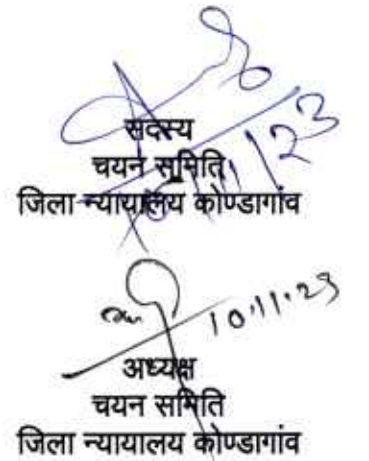 सदस्य
चयन समिति
जिला न्यायालय कोण्डागांव
10.11.23
अध्यक्ष
चयन समिति
जिला न्यायालय कोण्डागांव